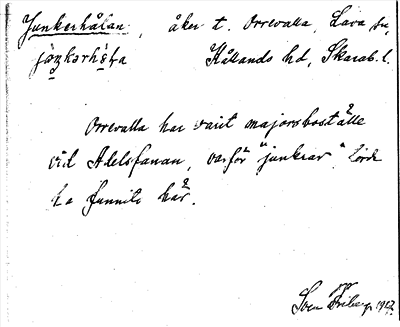 Junkerhålan, åker t. Orrevalla, Lava sn,
Kållands hd, Skarab. l.
Orrevalla har varit majorsboställe
vid Adelsfanan, varför "junkrar" torde
ha funnits här.
Sven Friberg 1927.